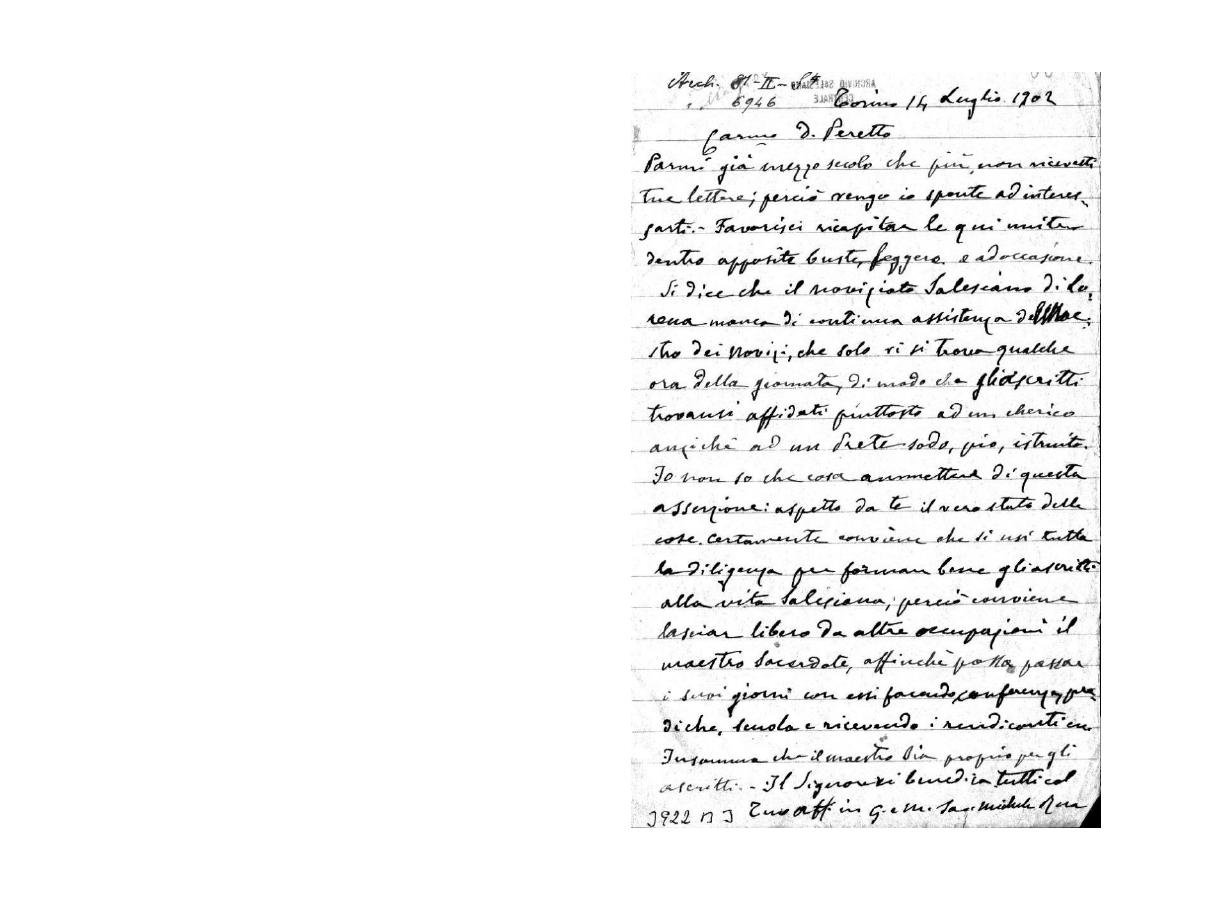 Arch. 81-II-
6946
ARCHIVIO SALESIANO
CENTRALE
Torino 14 Luglio 1902
Carmo D. Peretto
Parmi già mezzo secolo che più non ricevetti
tue lettere; perciò vengo io sponte ad interes-
sarti. - Favorisci ricapitar le qui unite
dentro apposite buste, leggere e ad occasione.
Si dice che il noviziato Salesiano di Lo-
rena manca di continua assistenza del Mae-
stro dei Novizi, che solo vi si trova qualche
ora della giornata, di modo che gli ascritti
trovansi affidati piuttosto ad un cherico
anziché ad un Prete sodo, pio, istruito.
Io non so che cosa ammettere di questa
asserzione: aspetto da te il vero stato delle
cose. Certamente conviene che si usi tutta
la diligenza per formar bene gli ascritti
alla vita Salesiana, perciò conviene
lasciar libero da altre occupazioni il
maestro Sacerdote, affinchè possa passar
i suoi giorni con essi facendo conferenze, pre-
diche, scuola e ricevendo i rendiconti
Insomma che il maestro sia proprio per gli
ascritti. - Il Signore vi benedica tutti col
Tuo aff. in G. e M. Sac. Michele Rua
3922